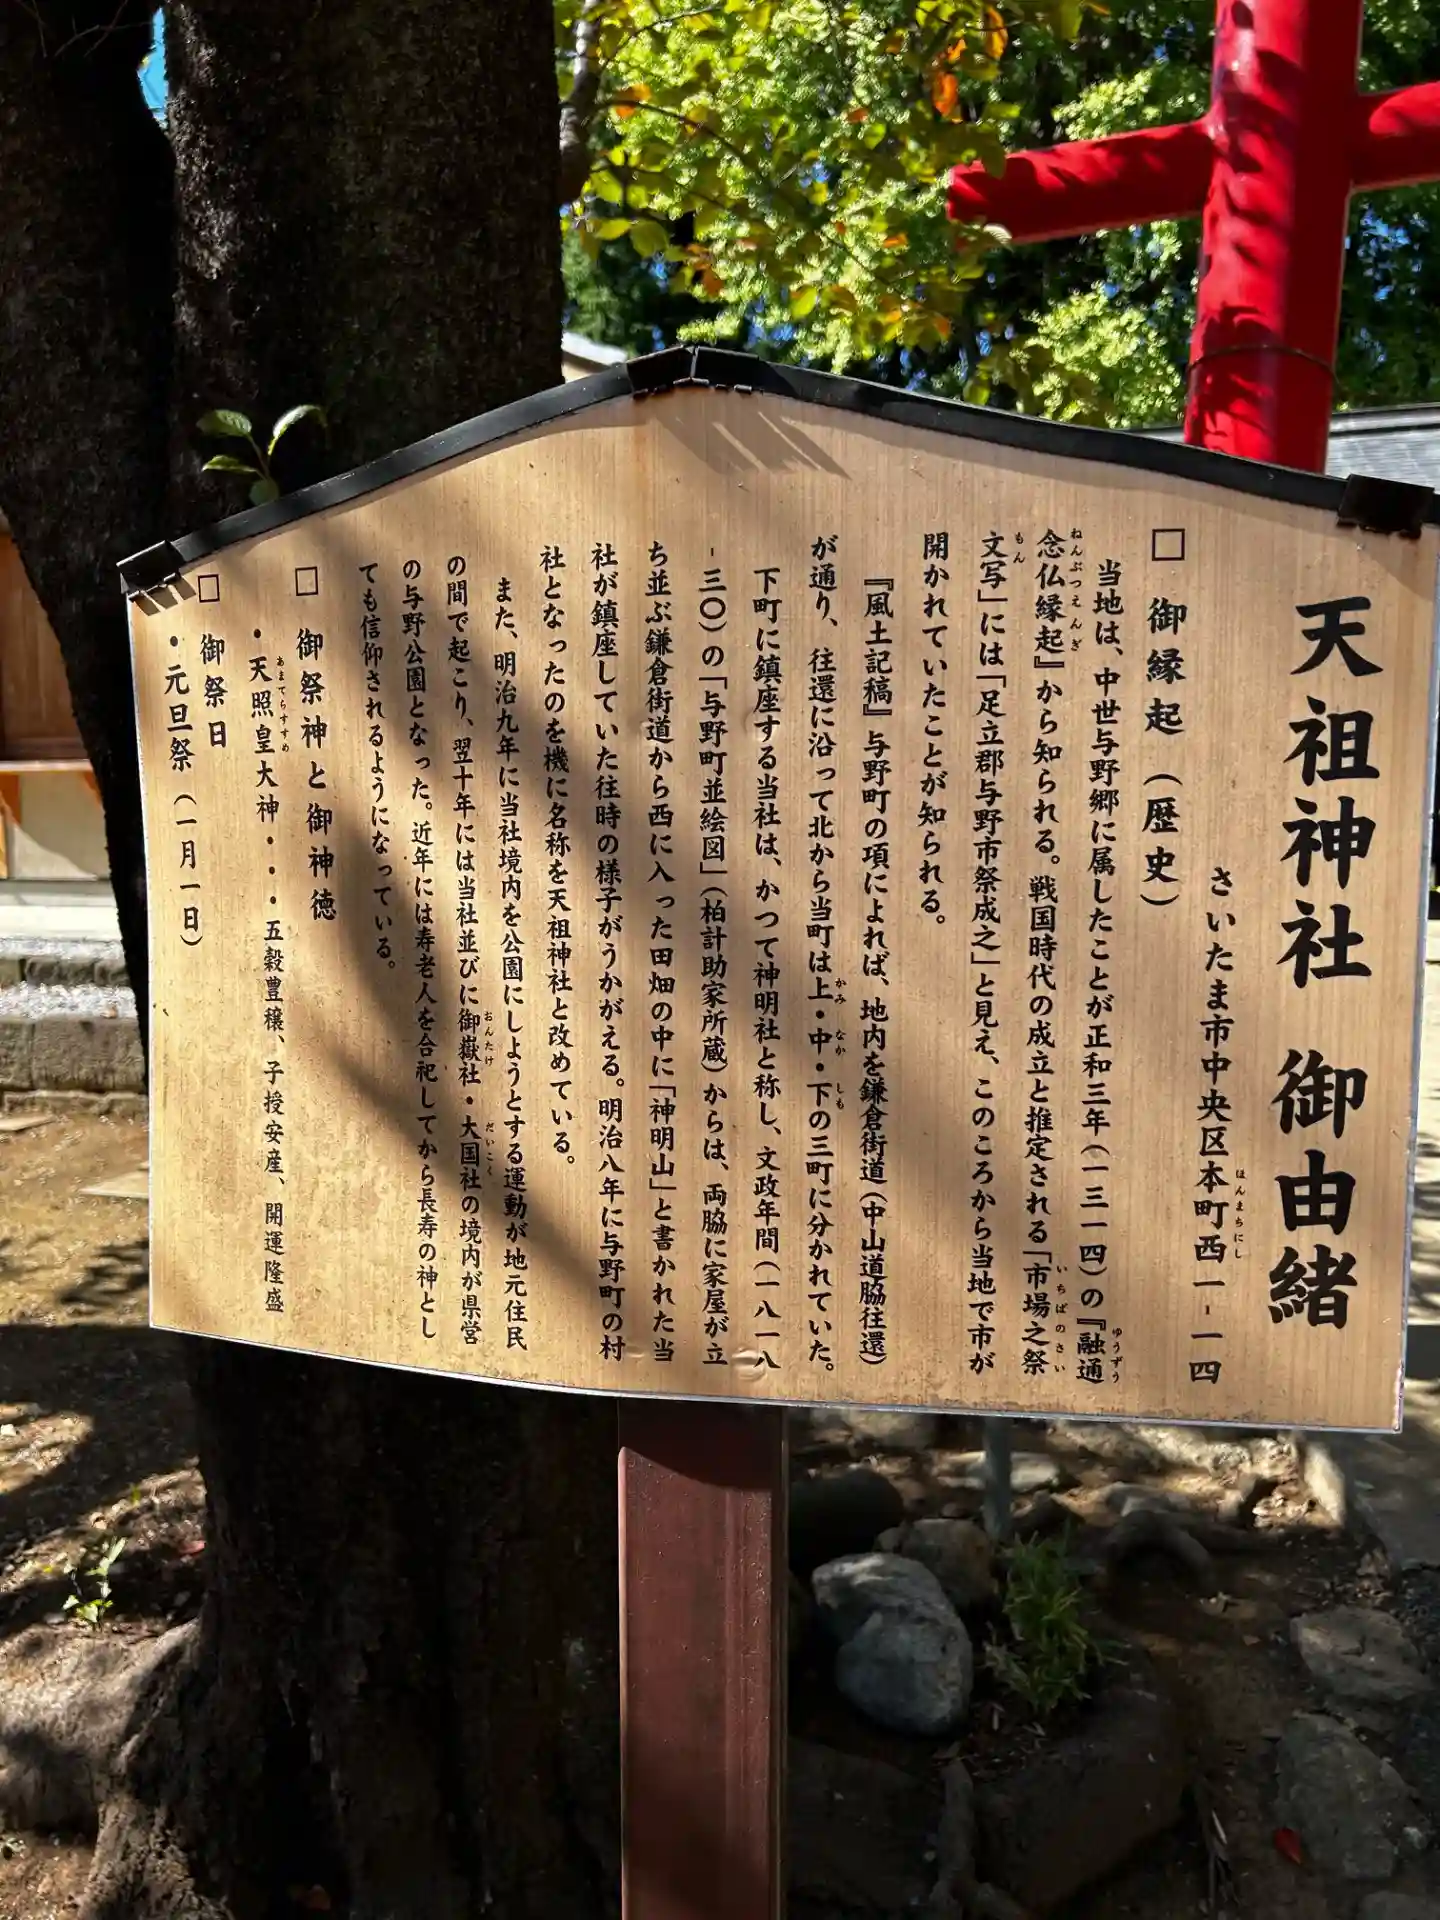 天祖神社 御由緒
さいたま市中央区本町西一-一四
ほんまちにし
□ 御縁起(歴史)
当地は、中世与野郷に属したことが正和三年(一三一四)の『融通
ゆうずう
念仏縁起』から知られる。戦国時代の成立と推定される「市場之祭
ねんぶつえんぎ
いちばのさい
文写」には「足立郡与野市祭成之」と見え、このころから当地で市が
もん
開かれていたことが知られる。
『風土記稿』与野町の項によれば、地内を鎌倉街道(中山道脇往還)
が通り、往還に沿って北から当町は上・中・下の三町に分かれていた。
かみ なか しも
下町に鎮座する当社は、かつて神明社と称し、文政年間(一八一八
-三〇)の「与野町並絵図」(柏計助家所蔵)からは、両脇に家屋が立
ち並ぶ鎌倉街道から西に入った田畑の中に「神明山」と書かれた当
社が鎮座していた往時の様子がうかがえる。明治八年に与野町の村
社となったのを機に名称を天祖神社と改めている。
また、明治九年に当社境内を公園にしようとする運動が地元住民
の間で起こり、翌十年には当社並びに御嶽社・大国社の境内が県営
おんたけ
だいこく
の与野公園となった。近年には寿老人を合祀してから長寿の神とし
ても信仰されるようになっている。
□ 御祭神と御神徳
・天照皇大神・・・五穀豊穣、子授安産、開運隆盛
あまてらすすめ
□ 御祭日
・元旦祭(一月一日)